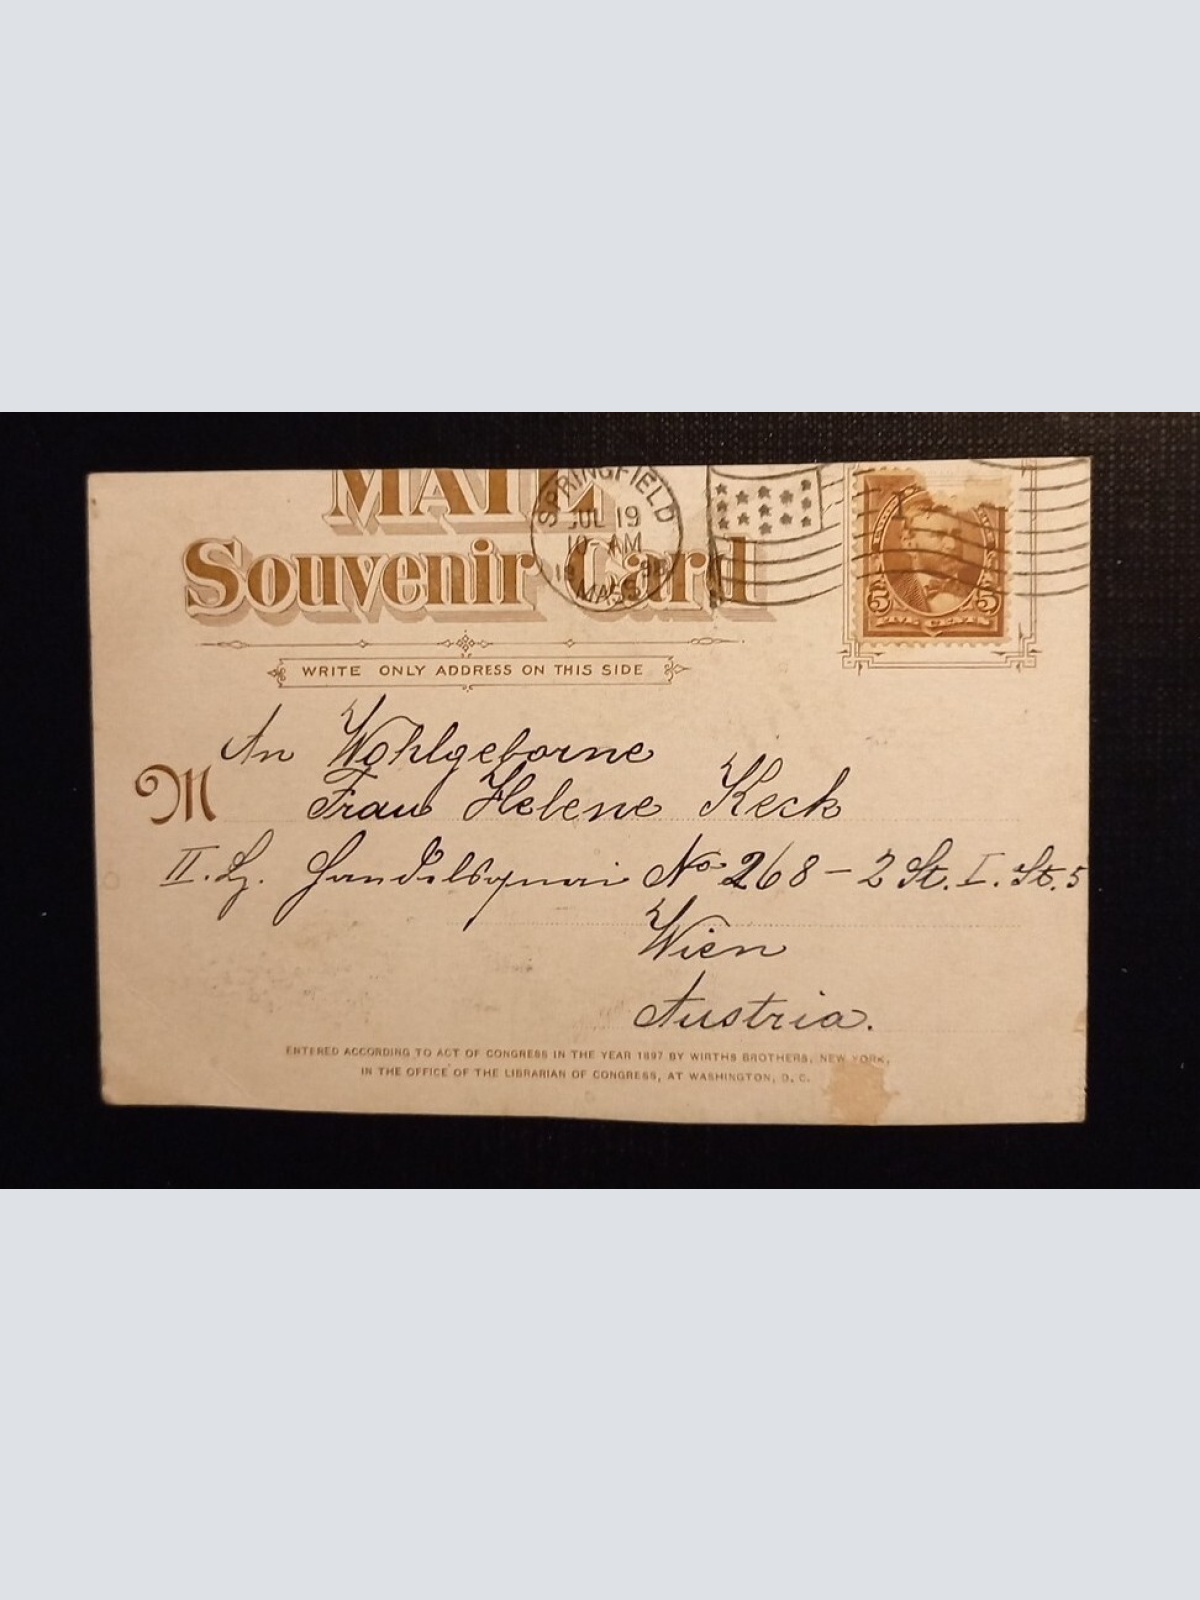 MAIL
Souvenir Card
SPRINGFIELD
JUL 19
10-AM
MASS
5 5
FIVE CENTS
WRITE ONLY ADDRESS ON THIS SIDE
An Wohlgeborne
M Frau Helene Keck
II. Bz. Handelsquai No 268 – 2 St. I. St. 5
Wien
Austria.
ENTERED ACCORDING TO ACT OF CONGRESS IN THE YEAR 1897 BY WIRTHS BROTHERS, NEW YORK,
IN THE OFFICE OF THE LIBRARIAN OF CONGRESS, AT WASHINGTON, D. C.